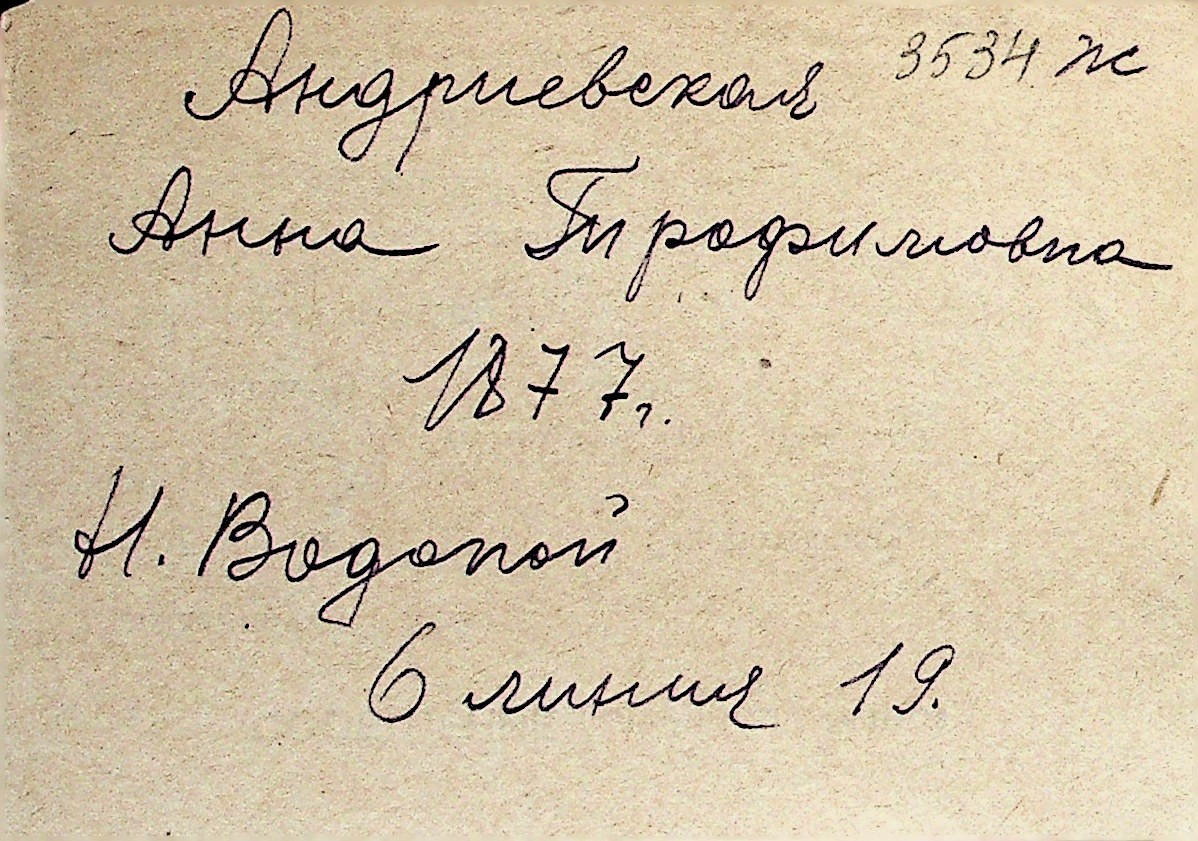 Андриевская 3534 ж
Анна Трофимовна
1877г.
Н. Водопой
6 линия 19.